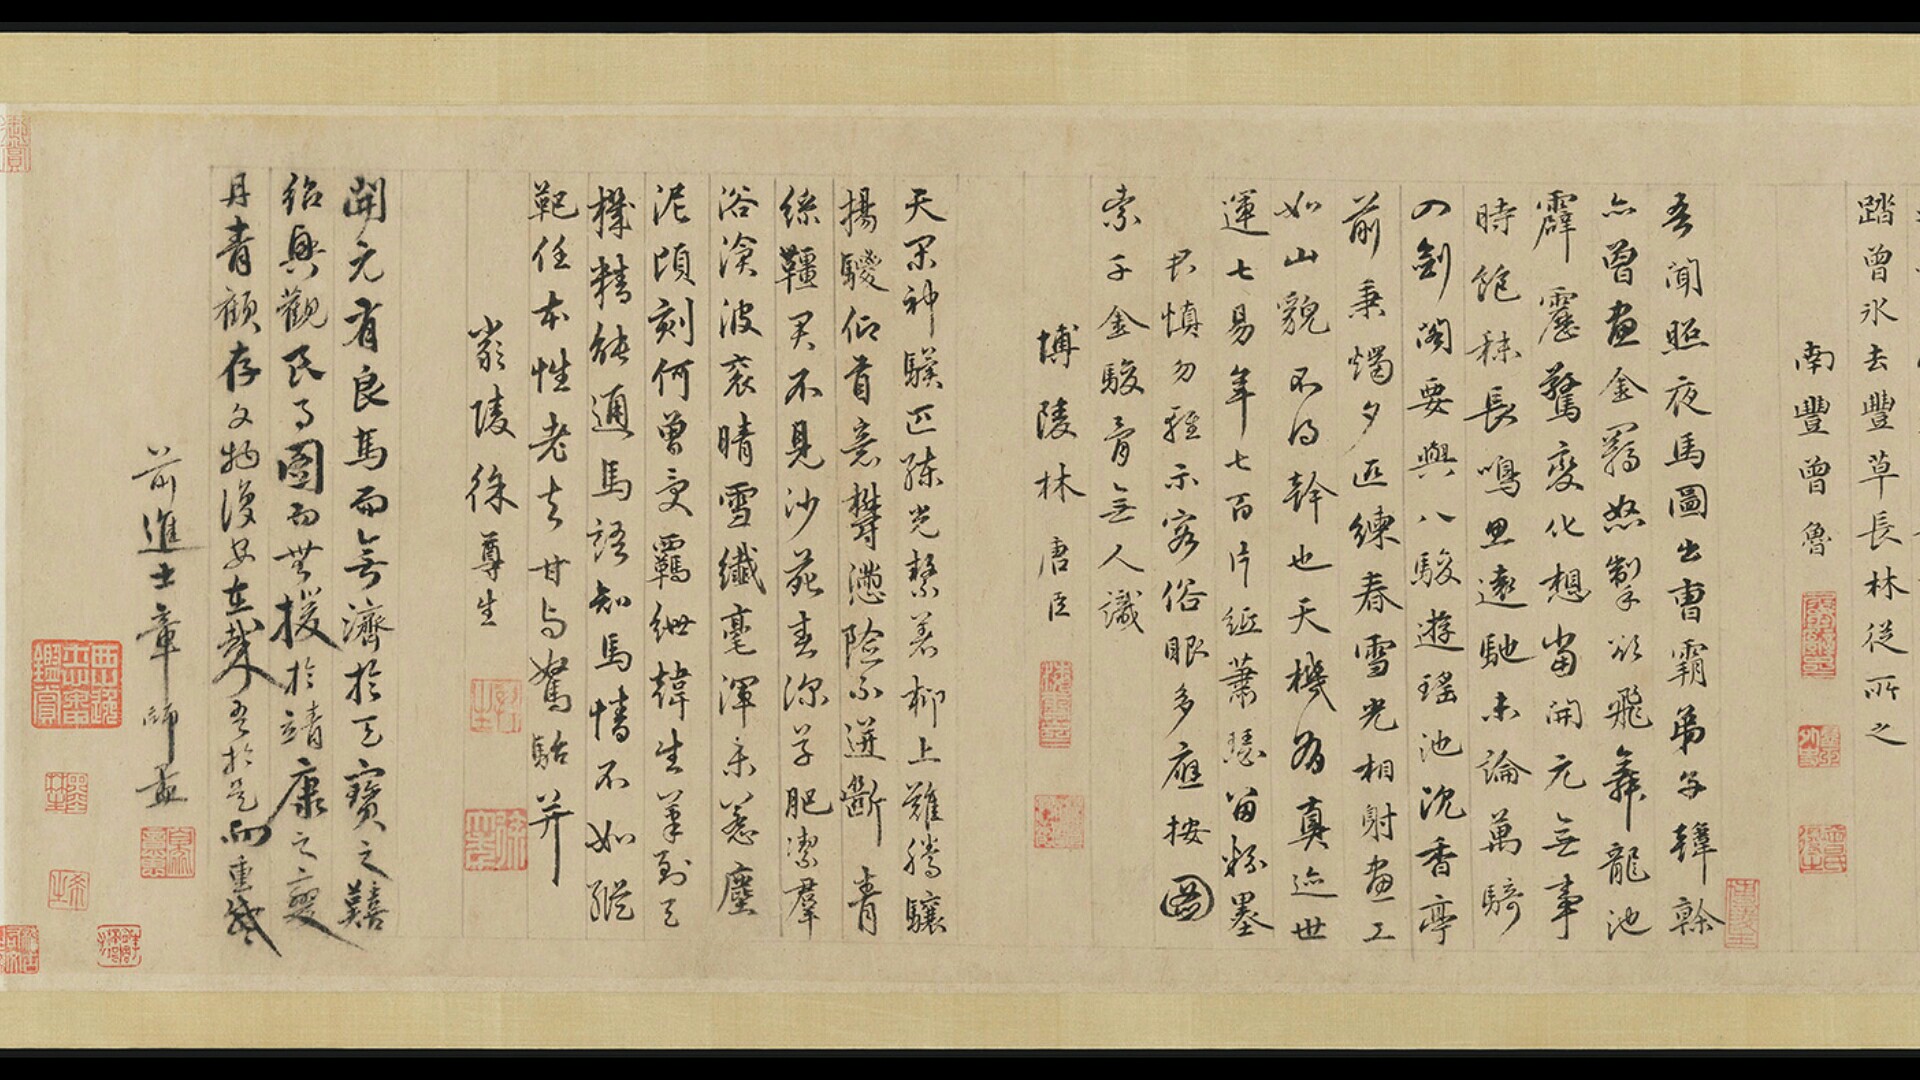 踏曾冰去豐草長林從所之
南豐曾魯
吾聞照夜馬圖出曹霸弟子韓幹
亦曾畫金羈怒掣欲飛舞龍池
霹靂驚變化想當開元無事
時飽秣長鳴思遠馳未論萬騎
入劍閣要與八駿遊瑤池沈香亭
前秉燭夕匹練春雪光相射畫工
如山貌不得幹也天機為真迹世
運七易年七百片紙蕭瑟留粉墨
君慎勿輕示客俗眼多應按圖
索千金駿骨無人識
博陵林唐臣
天閑神驥匹練光繫著柳上難騰驤
揚騣仰首意鬱懣險不迸斷青
絲韁君不見沙苑春深學肥潔群
浴滄波衮晴雪纖毫渾未惹塵
泥頃刻何曾受羈紲韓生筆到天
機精能通馬語知馬情不如縱
靶任本性老去甘與駑駘并
嚴陵徐尊生
開元有良馬而無濟於天寶之囏
紹興觀民馬圖而無援於靖康之變
丹青顧存文物復安在哉吾於是而重感
前進士章師孟